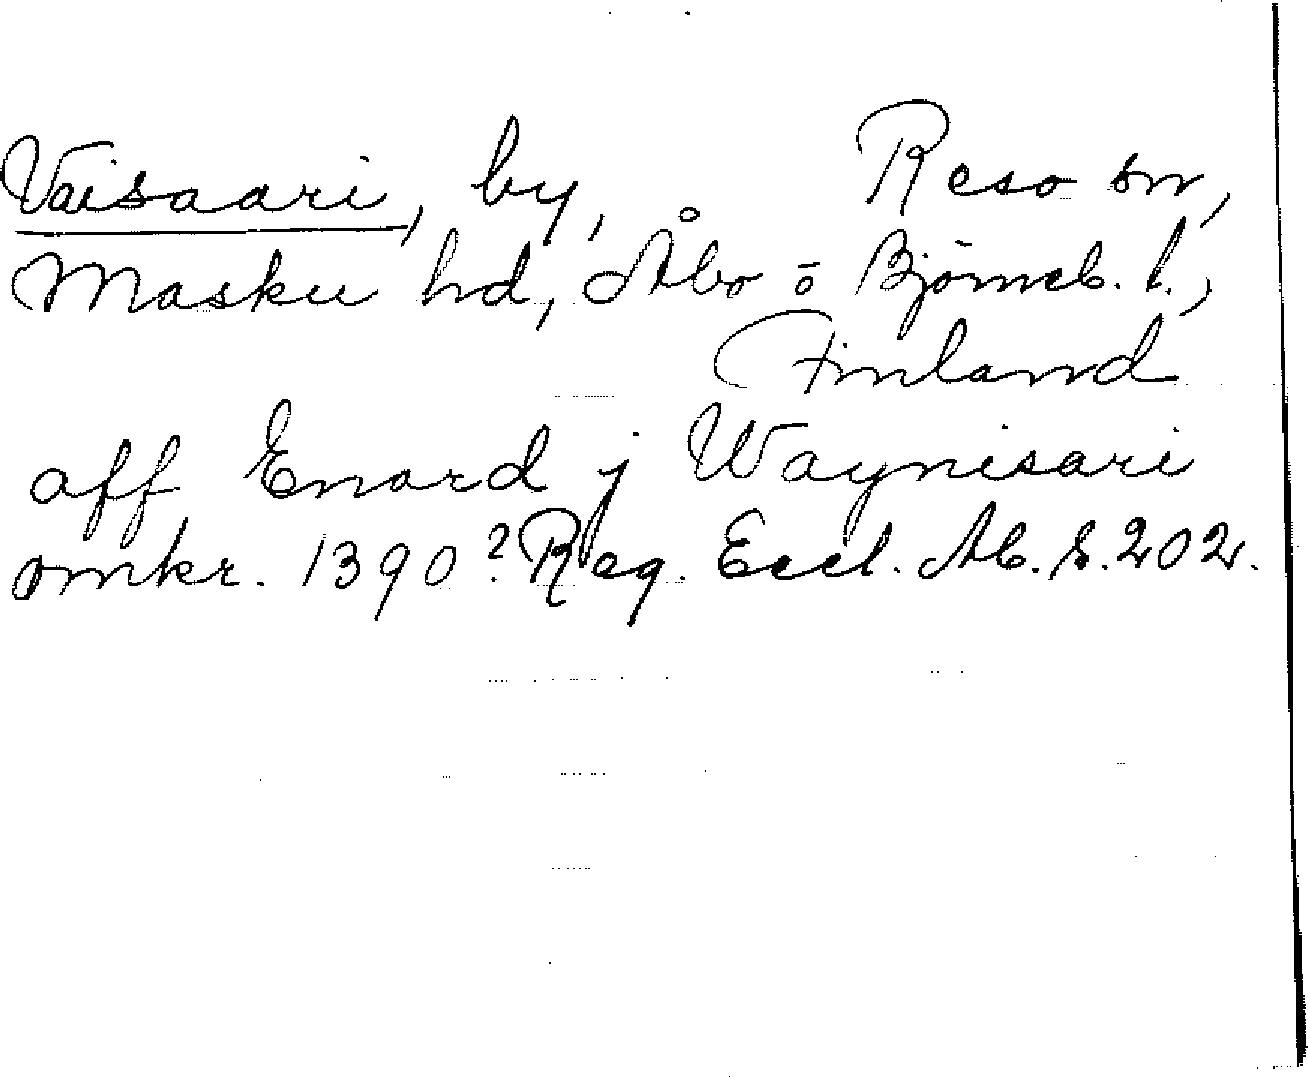 Vaisaari, by, Reso sn,
Masku hd, Åbo o Björneb. l.,
Finland
aff Enard j Waynisari
omkr. 1390? Reg. Eccl. Ab. s. 202.